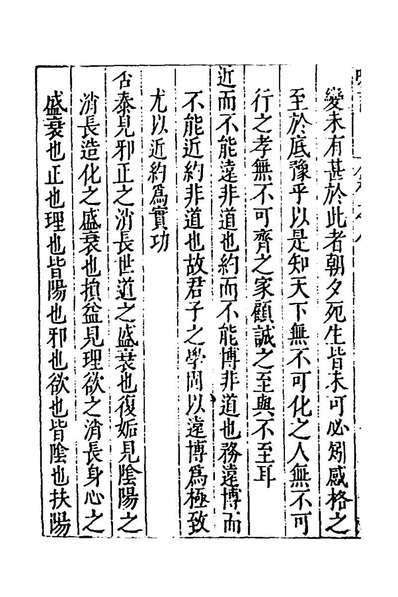 變未有甚於此者朝夕死生皆未可必矧感格之
至於底豫乎以是知天下無不可化之人無不可
行之孝無不可齊之家顧誠之至與不至耳
近而不能遠非道也約而不能博非道也務遠博而
不能近約非道也故君子之學問以遠博爲極致
尤以近約爲實功
否泰見邪正之消長世道之盛衰也復姤見陰陽之
消長造化之盛衰也損益見理欲之消長身心之
盛衰也正也理也皆陽也邪也欲也皆陰也扶陽